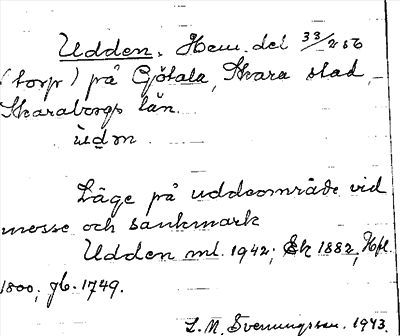 Udden. Hem. del 33/256
(torp) på Götala, Skara stad,
Skaraborgs län.
ùdn
Läge på uddeområde vid
mosse och sankmark
Udden ml. 1942; Ek 1882, Hfl.
1800; jb. 1749.
S. M. Svenungsson. 1943.